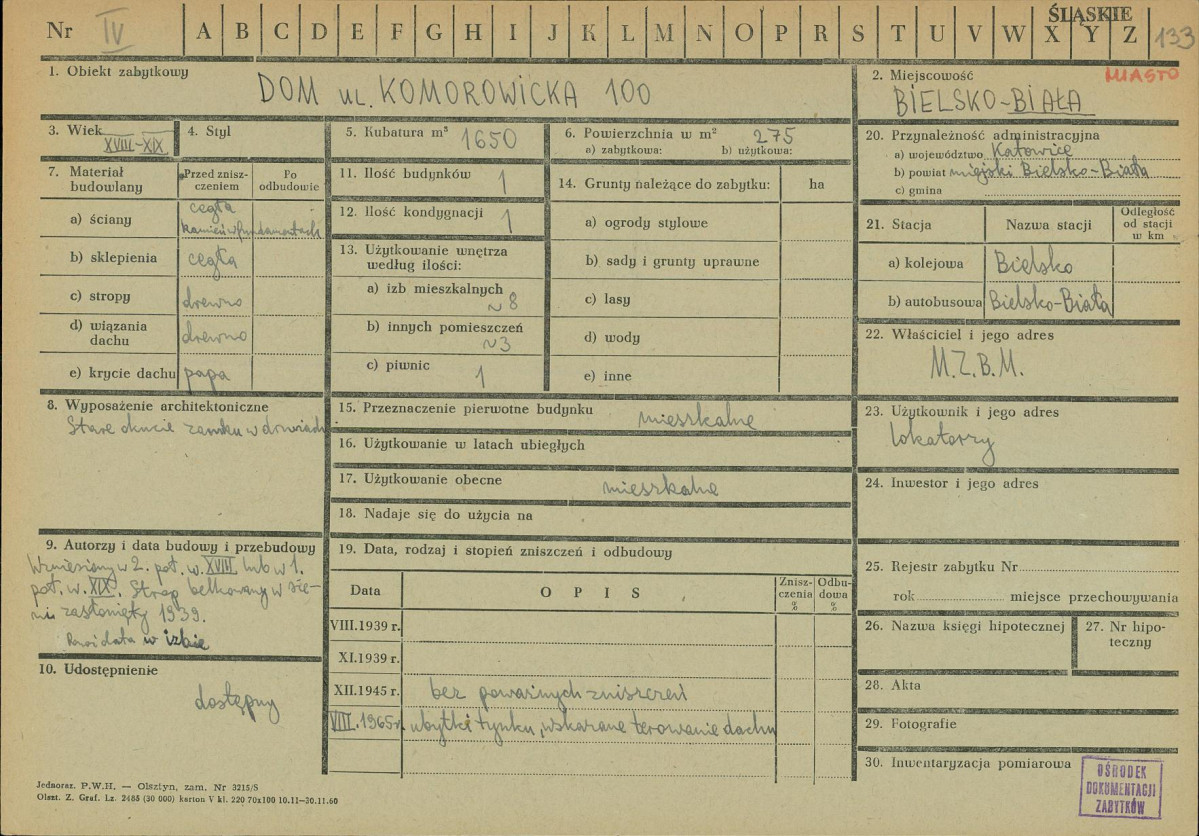 Nr IV A B C D E F G H I J K L M N O P R S T U V W X Y Z ŚLĄSKIE 133
1. Obiekt zabytkowy
DOM UL. KOMOROWICKA 100
2. Miejscowość MIASTO
BIELSKO-BIAŁA
3. Wiek
XVIII-XIX
4. Styl
5. Kubatura m³ 1650
6. Powierzchnia w m² 275
a) zabytkowa: b) użytkowa:
7. Materiał budowlany
Przed zniszczeniem
Po odbudowie
a) ściany cegła
kamień w fundamentach
b) sklepienia cegła
c) stropy drewno
d) wiązania dachu drewno
e) krycie dachu papa
8. Wyposażenie architektoniczne
Stare okucie zamku w drzwiach
9. Autorzy i data budowy i przebudowy
Wzniesiony w 2. poł. w. XVIII lub w 1.
poł. w. XIX. Strop belkowany w sie-
ni zasłonięty 1939.
w izbie
10. Udostępnienie
dostępny
11. Ilość budynków 1
12. Ilość kondygnacji 1
13. Użytkowanie wnętrza
według ilości:
a) izb mieszkalnych
~8
b) innych pomieszczeń
~3
c) piwnic
1
14. Grunty należące do zabytku: ha
a) ogrody stylowe
b) sady i grunty uprawne
c) lasy
d) wody
e) inne
15. Przeznaczenie pierwotne budynku mieszkalne
16. Użytkowanie w latach ubiegłych
17. Użytkowanie obecne mieszkalne
18. Nadaje się do użycia na
19. Data, rodzaj i stopień zniszczeń i odbudowy
Data O P I S Zniszczenia % Odbudowa %
VIII.1939 r.
XI.1939 r.
XII.1945 r. bez poważnych zniszczeń
VIII.1965 r. ubytki tynku, wskazane terowanie dachu
20. Przynależność administracyjna
a) województwo Katowice
b) powiat miejski Bielsko-Biała
c) gmina
21. Stacja Nazwa stacji Odległość od stacji w km
a) kolejowa Bielsko
b) autobusowa Bielsko-Biała
22. Właściciel i jego adres
M.Z.B.M.
23. Użytkownik i jego adres
lokatorzy
24. Inwestor i jego adres
25. Rejestr zabytku Nr
rok miejsce przechowywania
26. Nazwa księgi hipotecznej
27. Nr hipoteczny
28. Akta
29. Fotografie
30. Inwentaryzacja pomiarowa
OŚRODEK
DOKUMENTACJI
ZABYTKÓW
Jednoraz. P.W.H. — Olsztyn, zam. Nr 3215/S
Olszt. Z. Graf. Lz. 2485 (30 000) karton V kl. 220 70x100 10.11—30.11.60